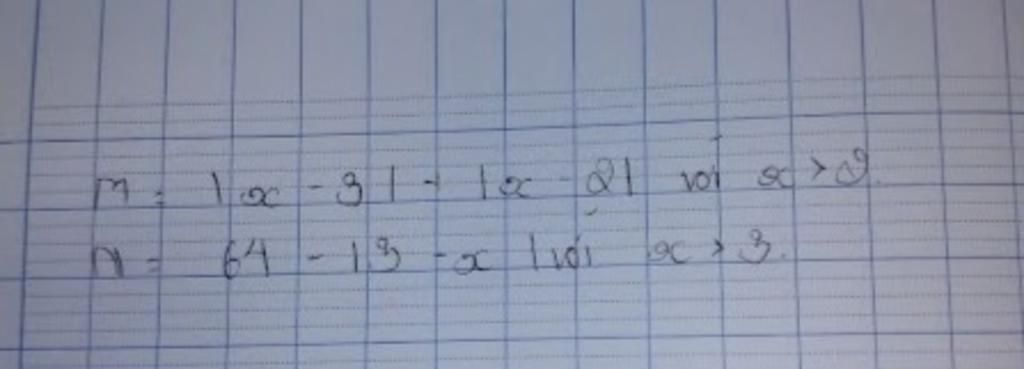 M = |x - 3| + |x - 2| với x > 2.
N = 64 - |3 - x| với x > 3.